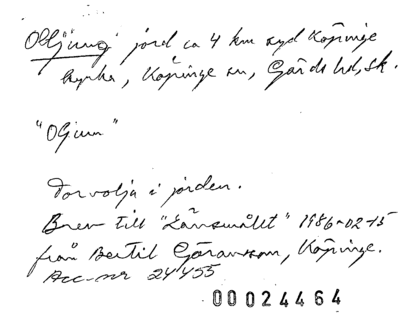 Oljüng jord ca 4 km syd Köpinge
kyrka, Köpinge sn, Gärds hd, Sk.
"Oljum"
Torvolja i jorden.
Brev till "Länsmålet" 1986-02-15
från Bertil Göransson, Köpinge.
Acc-nr 24455
00024464